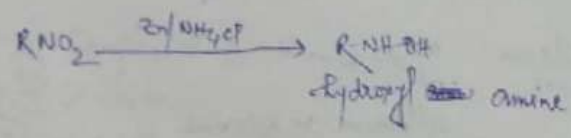 RNO₂ Zn/NH₄Cl → R-NH-OH
hydroxyl amine